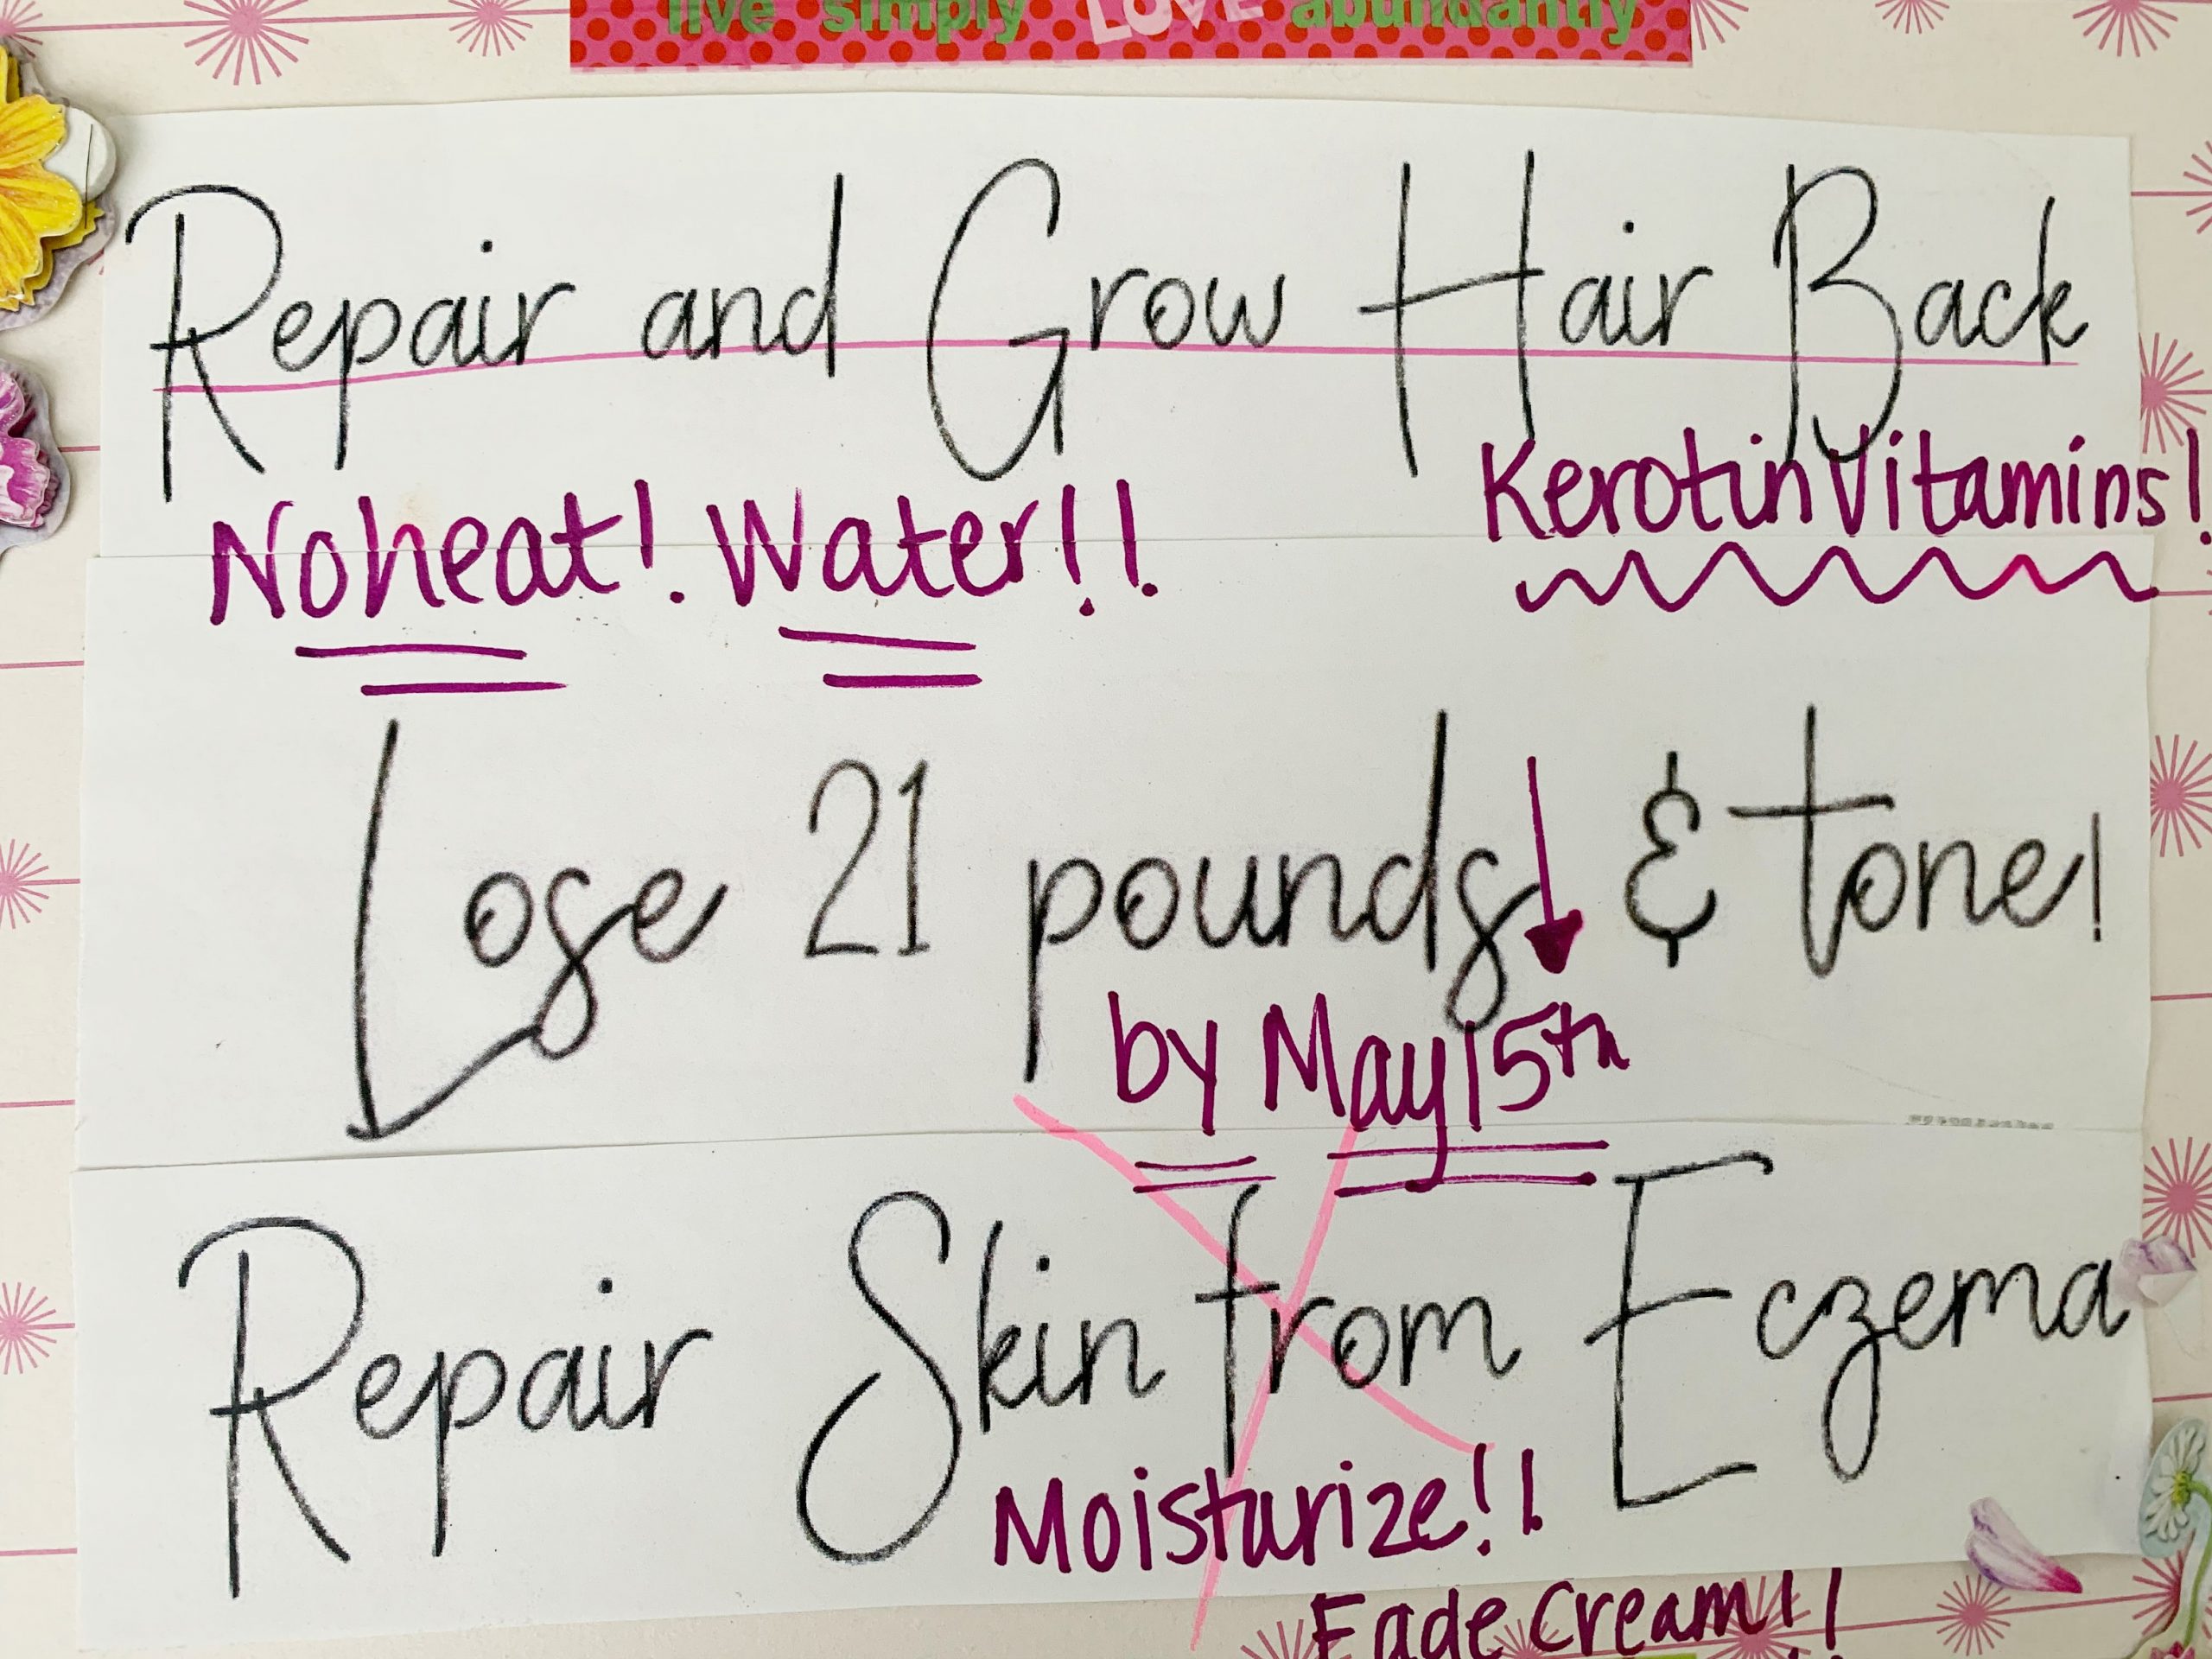 live simply LOVE abundantly
Repair and Grow Hair Back
Noheat! Water!!
Kerotin Vitamins!
Lose 21 pounds & tone!
by May 15th
Repair Skin from Eczema
Moisturize!!
Fade Cream!!